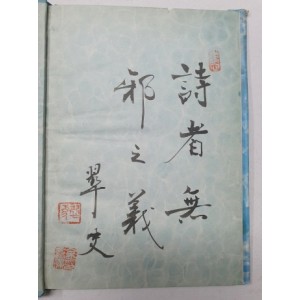 詩者無
邪之義
翠史